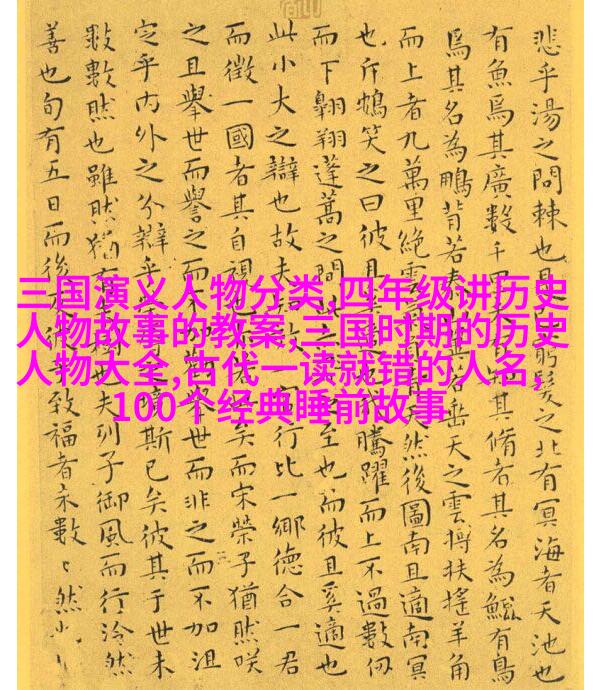 三国演义人物分类,四年级讲历史
人物故事的教案,三国时期的历史
人物大全,古代一读就错的人名,
100个经典睡前故事
悲乎湯之問棘也是窮髮之北有冥海者天池也
有魚焉其廣數千里其脩者其名為鯤有鳥
焉其名為鵬背若垂天之雲摶扶搖羊角
而上者九萬里絕雲然後圖南且適南冥
也斥鴳笑之曰彼且騰躍而上不過數仞
而下翱翔蓬蒿之間至也而彼且奚適也
此小大之辯也故夫行比一鄉德合一君
而徵一國者其自視矣而宋榮子猶然咲
之且舉世而譽之而不舉世而非之而不加沮
定乎內外之分辯乎斯已矣彼其于世未
數數然也雖然猶有夫列子御風而行泠然
善也旬有五日而後致福者未數〻然